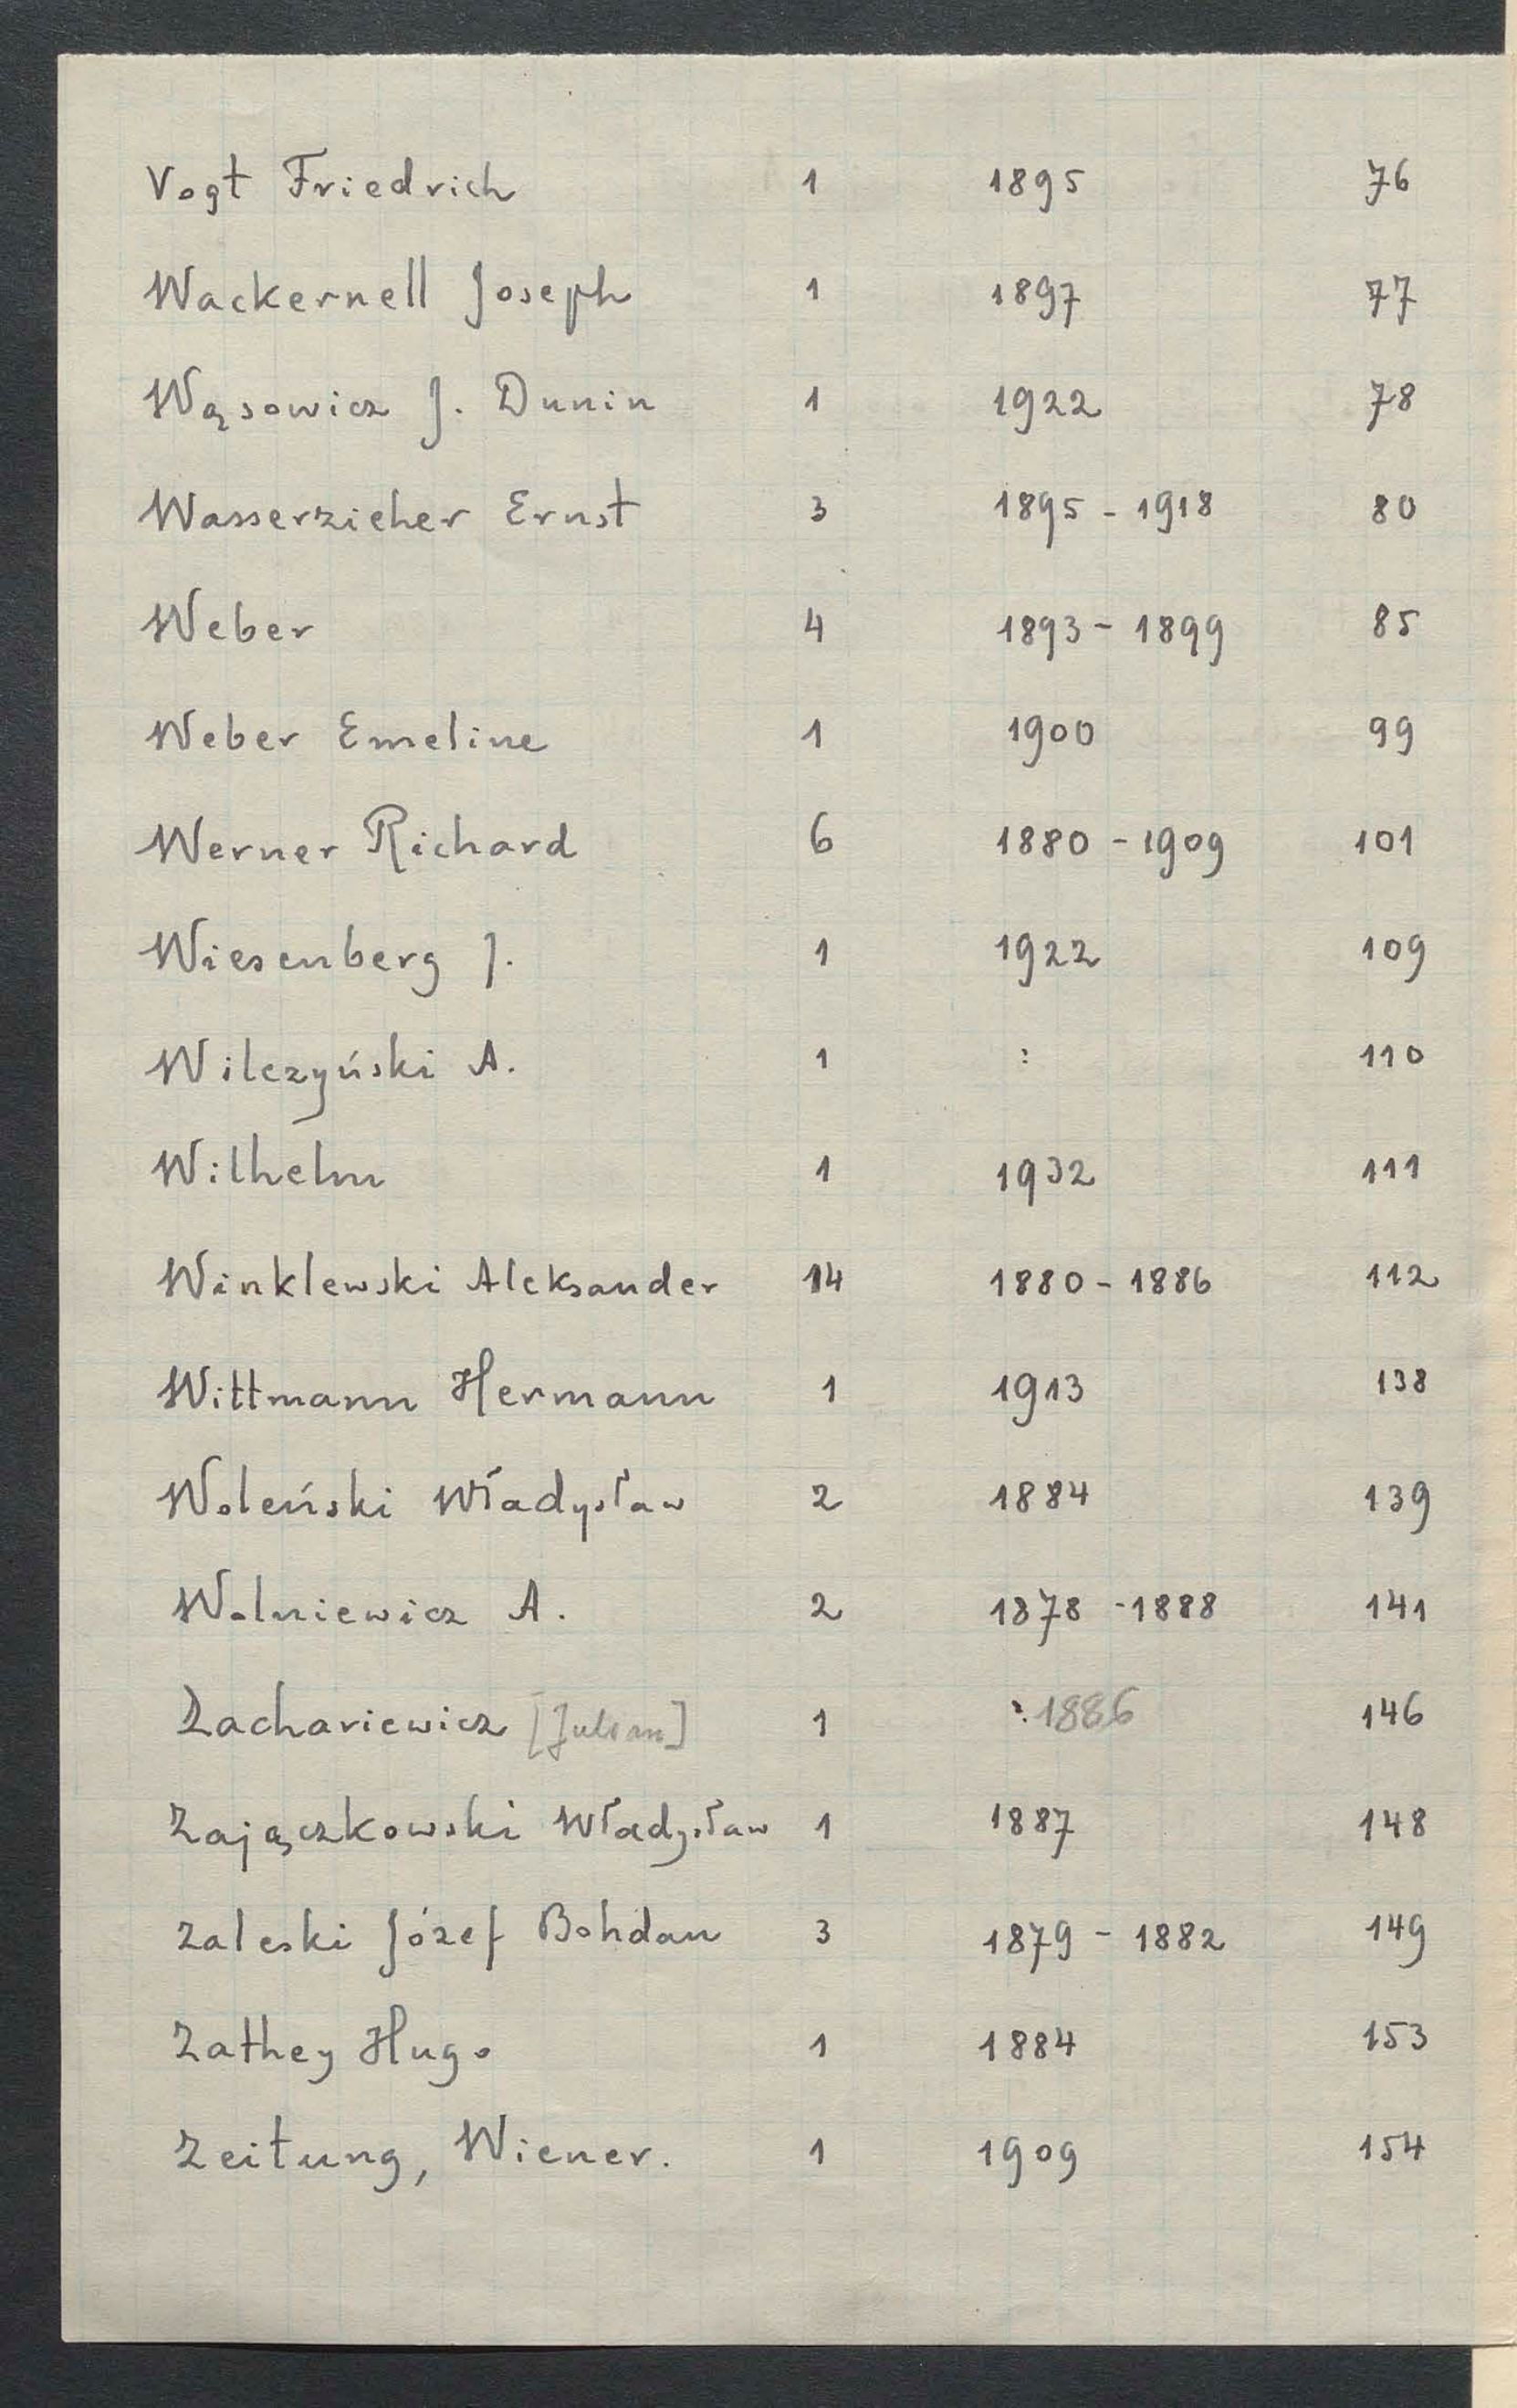 Vogt Friedrich 1 1895 76
Wackernell Joseph 1 1897 77
Wąsowicz J. Dunin 1 1922 78
Wasserzieher Ernst 3 1895 - 1918 80
Weber 4 1893 - 1899 85
Weber Emeline 1 1900 99
Werner Richard 6 1880 - 1909 101
Wiesenberg J. 1 1922 109
Wilczyński A. 1 : 110
Wilhelm 1 1932 111
Winklewski Aleksander 14 1880 - 1886 112
Wittmann Hermann 1 1913 138
Woleński Władysław 2 1884 139
Wolniewicz A. 2 1878 - 1888 141
Zachariewicz [Julian] 1 : 1886 146
Zajączkowski Władysław 1 1887 148
Zaleski Józef Bohdan 3 1879 - 1882 149
Zathey Hugo 1 1884 153
Zeitung, Wiener. 1 1909 154